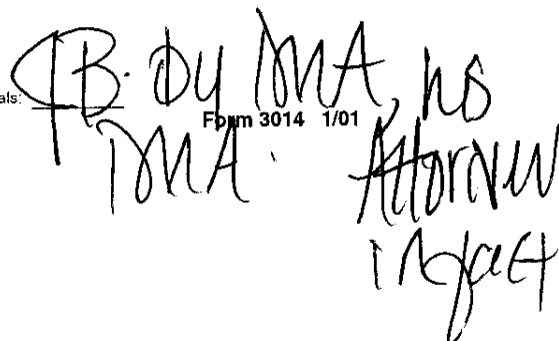 als: JB. by DMA, his
Form 3014 1/01
DMA. Attorney
in fact